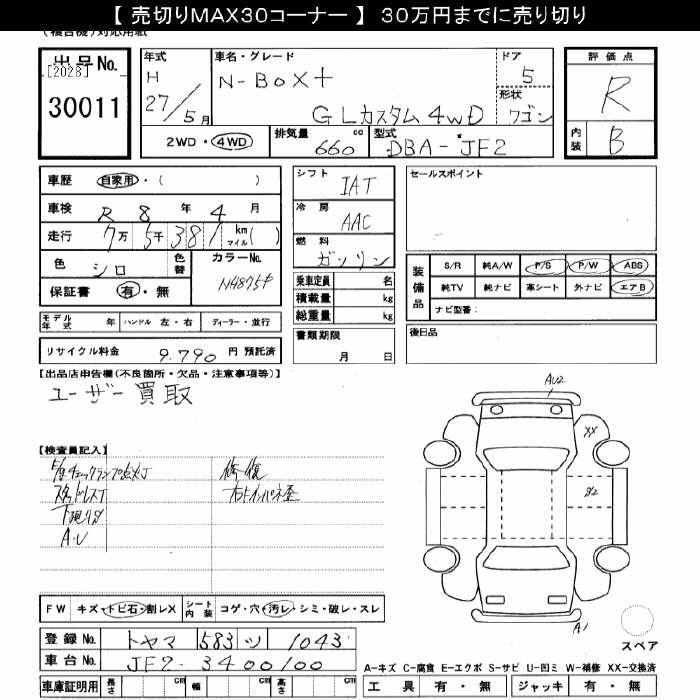 【 売切りMAX30コーナー 】 30万円までに売り切り
(複合機)対応用紙
出品No. [2028] 30011
年式 H 27/5月
車名・グレード N-BOX+ GLカスタム4WD
ドア 5
形状 ワゴン
評価点 R
内装 B
2WD・4WD 排気量 660 cc 型式 DBA-JF2
車歴 自家用・( )
車検 R 8年 4月
走行 7万 5千 381 km マイル( )
色 シロ 色替 カラーNo. NH875P
保証書 有・無
モデル年式 年 ハンドル 左・右 ディーラー・並行
リサイクル料金 9,790 円 預託済
シフト IAT
冷房 AAC
燃料 ガソリン
乗車定員 名
積載量 kg
総重量 kg
書類期限
月 日
セールスポイント
装備品 S/R 純A/W P/S P/W ABS
純TV 純ナビ 革シート 外ナビ エアB
ナビ型番:
後日品
【出品店申告欄(不良箇所・欠品・注意事項等)】
ユーザー買取
【検査員記入】
チェックランプ点灯
スタッドレスT
下廻りサ
A・U
修復
右トインパネ歪
AU2
XX
A1
FW キズ・トビ石・割レX シート内装 コゲ・穴・汚レ・シミ・破レ・スレ
登録No. トヤマ 583 ツ 1043
車台No. JF2-3400100
車庫証明用 長さ cm 幅 cm 高さ cm
スペア
A-キズ C-腐食 E-エクボ S-サビ U-凹ミ W-補修 XX-交換済
工具 有・無 ジャッキ 有・無